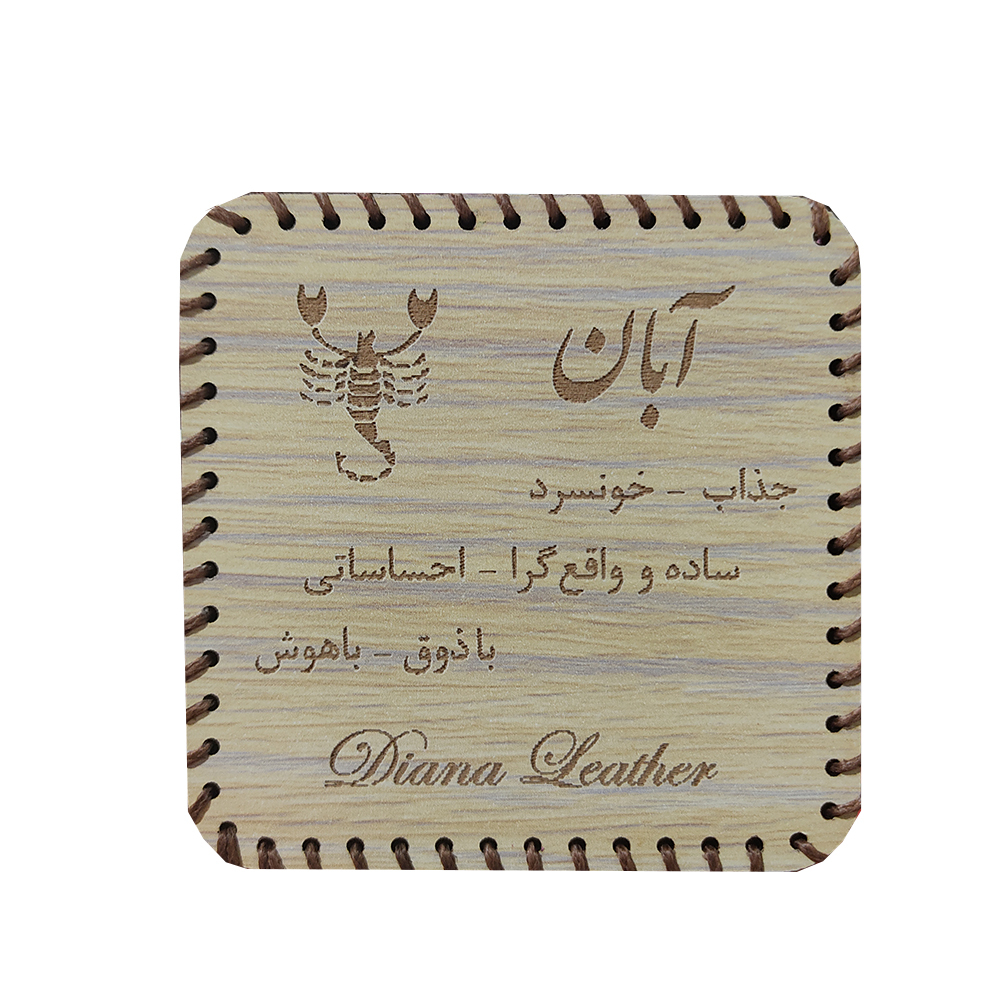 آبان
جذاب - خونسرد
ساده و واقع گرا - احساساتی
با ذوق - باهوش
Diana Leather